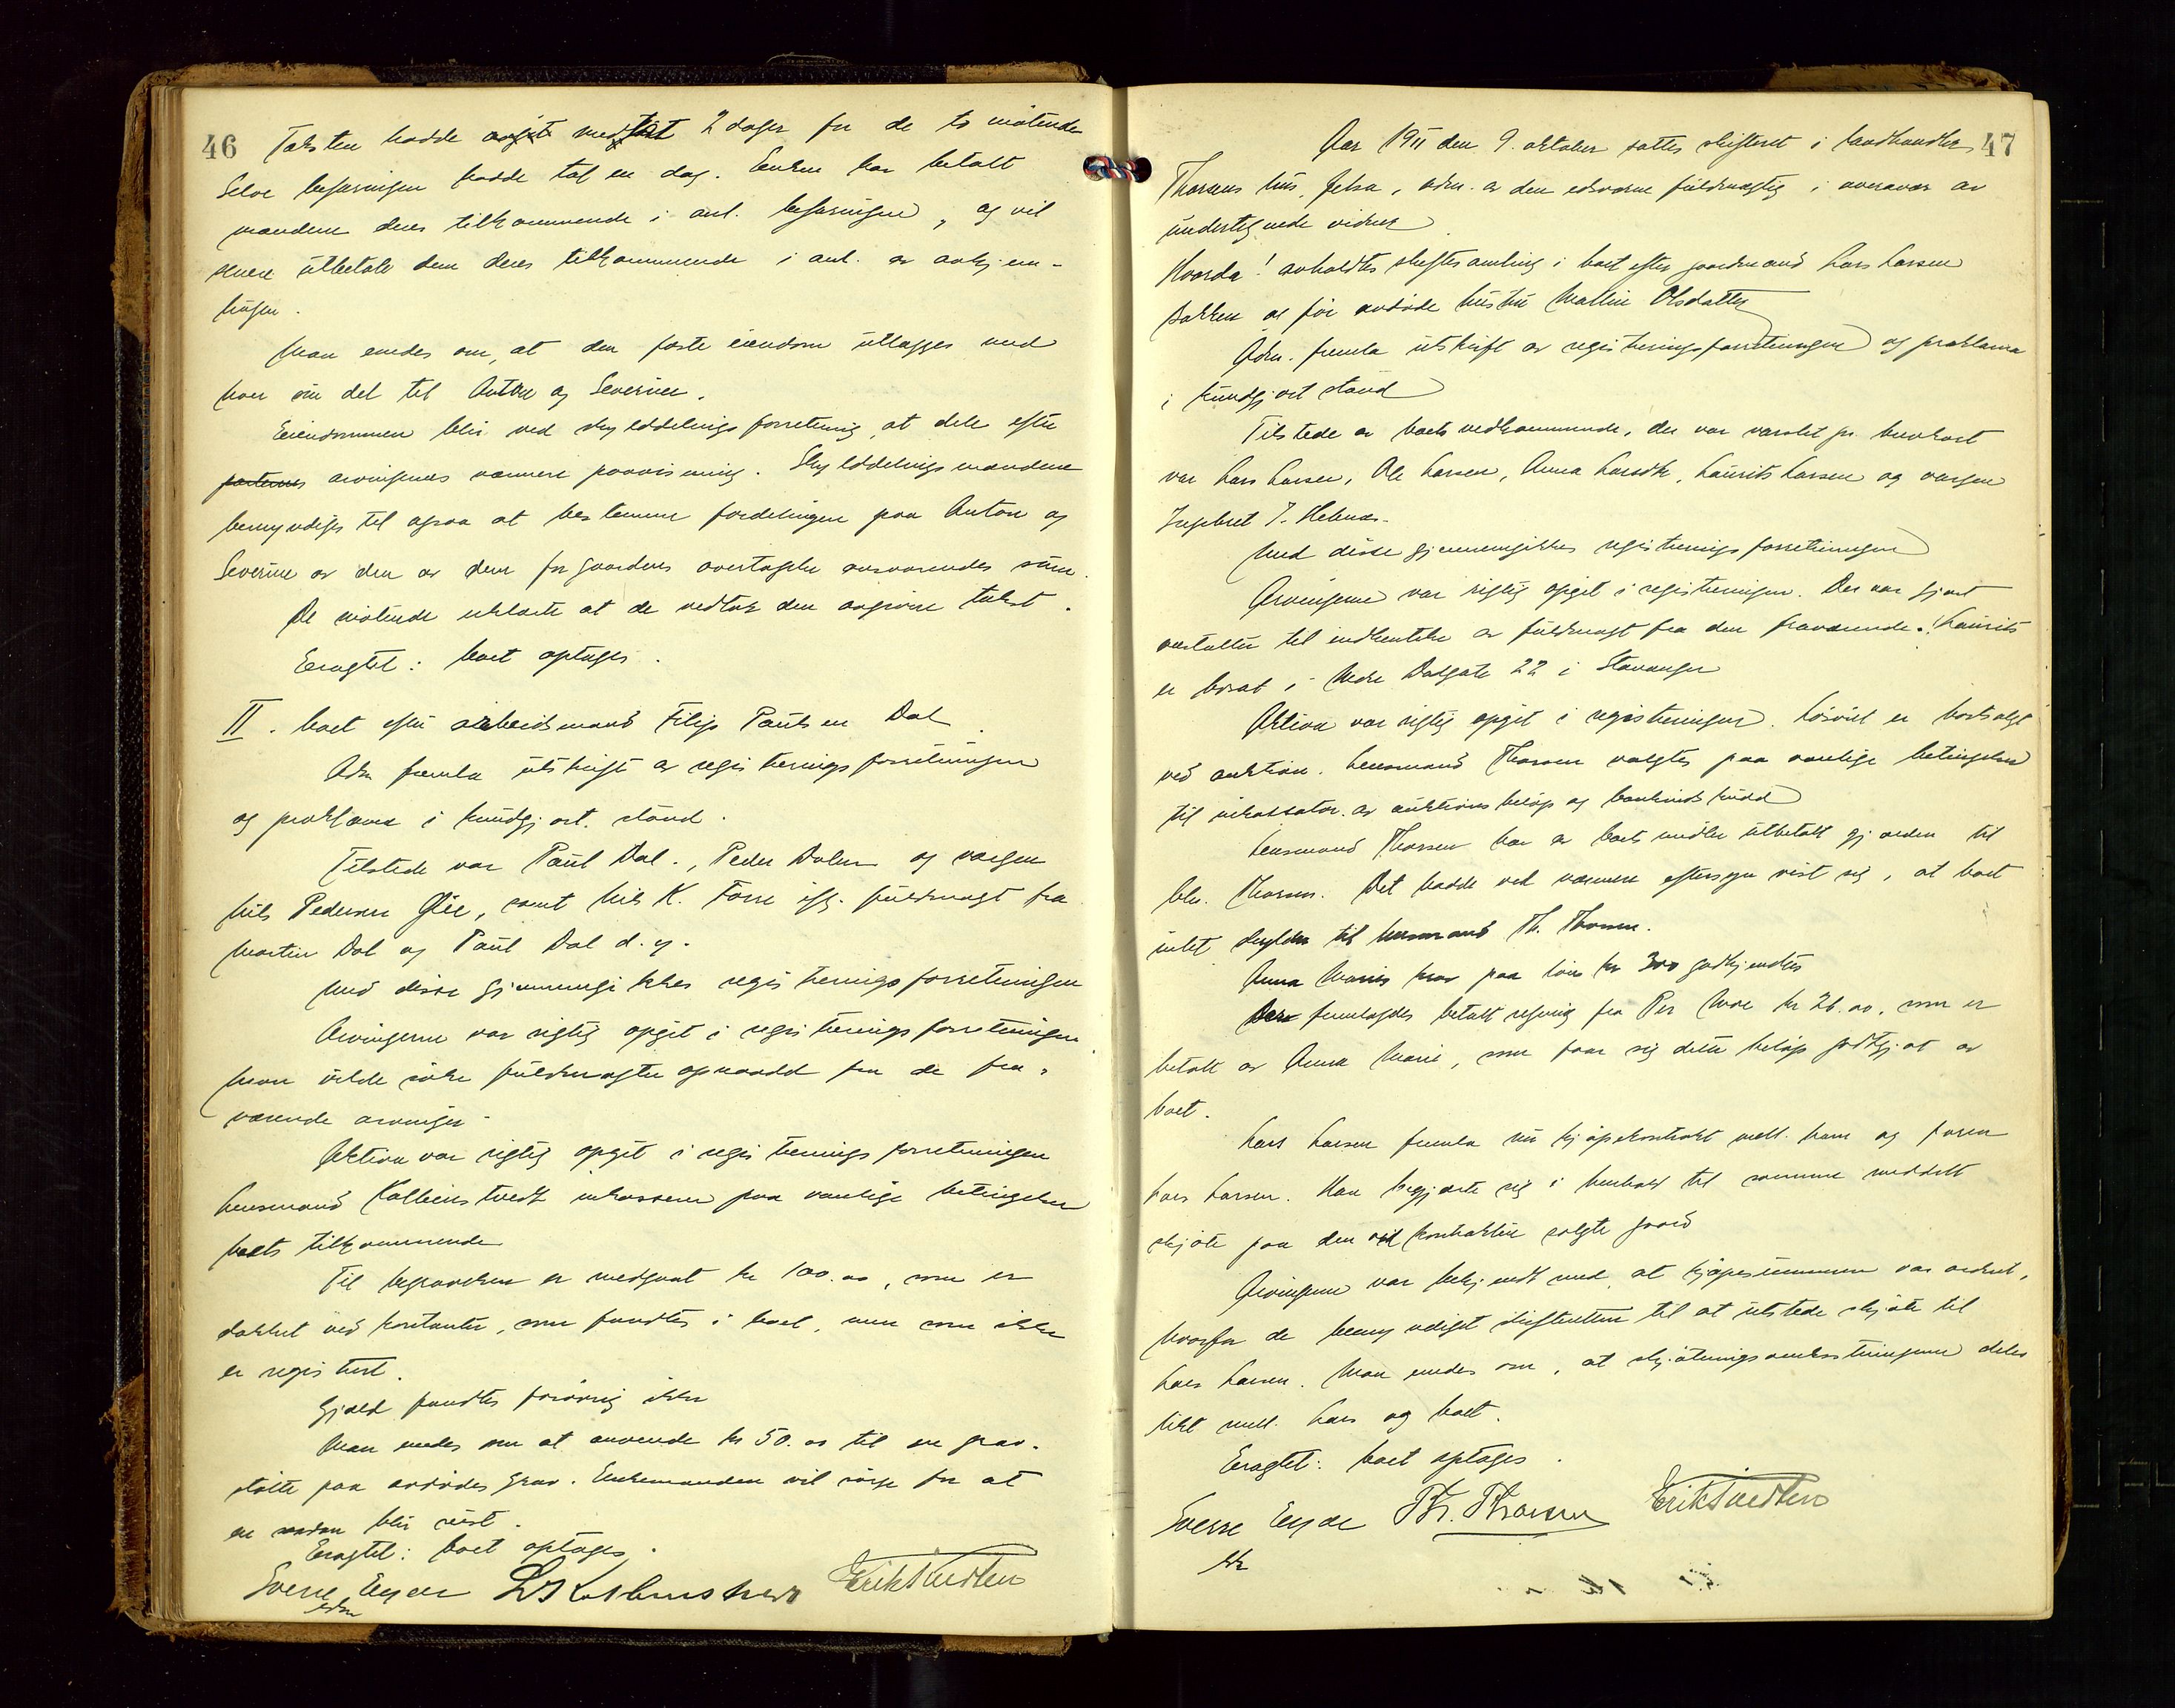 46
Taksten hadde medført 2 dager for de to møtende
Selve befaringen hadde tat en dag. Enken har betalt
mændene deres tilkommende i anl. befaringen, og vil
senere utbetale dem deres tilkommende i anl. av avhjem-
lingen.
Man enedes om, at den faste eiendom utlægges med
hver sin del til Anton og Severine.
Eiendommen blir ved skylddelingsforretning at dele efter
parternes arvingenes nærmere paavisning. Skylddelingsmændene
bemyndiges til ogsaa at bestemme fordelingen paa Anton og
Severine av den av dem for gaardens overtagelse ansvarendes sum.
De møtende erklærte at de vedtok den avgivne takst.
Eragtet: boet optages.
II. boet efter arbeidsmand Filip Paulsen Dal
Adm fremla utskrift av registreringsforretningen
og proklama i kundgjort stand.
Tilstede var Paul Dal, Peder Dalen og vergen
Nils Pedersen Glie, samt Nils K. Forre ifg. fuldmagt fra
Martin Dal og Paul Dal d. y.
Med disse gjennemgikkes registreringsforretningen
Arvingerne var rigtig opgit i registreringsforretningen
Man vilde søke fuldmagter opnaadd fra de fra-
værende arvinger.
Aktiva var rigtig opgit i registreringsforretningen
Lensmand Kolbeinstvedt inkasserer paa vanlige betingelser
boets tilkommende
Til begravelsen er medgaat kr 100.00, som er
dækket ved kontanter, som fandtes i boet, men som ikke
er registrert.
Gjæld fandtes forøvrig ikke
Man enedes om at anvende kr 50.00 til en grav-
støtte paa avdødes grav. Enkemanden vil sørge for at
en saadan blir reist.
Eragtet: boet optages.
Sverre Eyde L S Kolbenstvedt Erik Tvedten
edsv
47
Aar 1911 den 9. oktober sattes skifteret i landhandler
Thorsens hus, Jelsa, adm. av den edsvorne fuldmægtig i overvær av
undertegnede vidner
Hvorda! avholdtes skiftesamling i boet efter gaardmand Lars Larsen
Bakken og før avdøde hustru Malline Olsdatter
Adm. fremla utskrift av registreringsforretningen og proklama
i kundgjort stand
Tilstede av boets vedkommende, der var varslet pr. brevkort
var Lars Larsen, Ole Larsen, Anna Larsdtr, Laurits Larsen og vergen
Ingebret T. Helnæs.
Med disse gjennemgikkes registreringsforretningen
Arvingerne var rigtig opgit i registreringen. Der var gjort
anstalter til indhentelse av fuldmagt fra den fraværende. Laurits
er bosat i Nedre Dalgate 22 i Stavanger
Aktiva var rigtig opgit i registreringen. Løsøret er bortsolgt
ved auktion. Lensmand Thorsen valgtes paa vanlige betingelser
til inkassator av auktionsbeløp og bankindskudd
Lensmand Thorsen har av boets midler utbetalt gjælden til
Thorsen. Det hadde ved nærmere eftersyn vist sig, at boet
intet skylder til lensmand Th. Thorsen.
Anna Maries krav paa løn kr 300 godkjendtes
Der fremlagdes betalt regning fra Per kr 26.00, som er
betalt av Anna Marie, som faar sig dette beløp godtgjort av
boet.
Lars Larsen fremla sin kjøpekontrakt mell. ham og faren
Lars Larsen. Han begjærte sig i henhold til samme meddelt
skjøte paa den ved kontrakten solgte gaard
Arvingerne var bekjendt med at kjøpesummen var ordnet,
hvorfor de bemyndiget skifteretten til at utstede skjøte til
Lars Larsen. Man enedes om, at skjøtningsomkostningerne deles
likt mell. Lars og boet.
Eragtet: boet optages.
Sverre Eyde Th. Thorsen Erik Tvedten